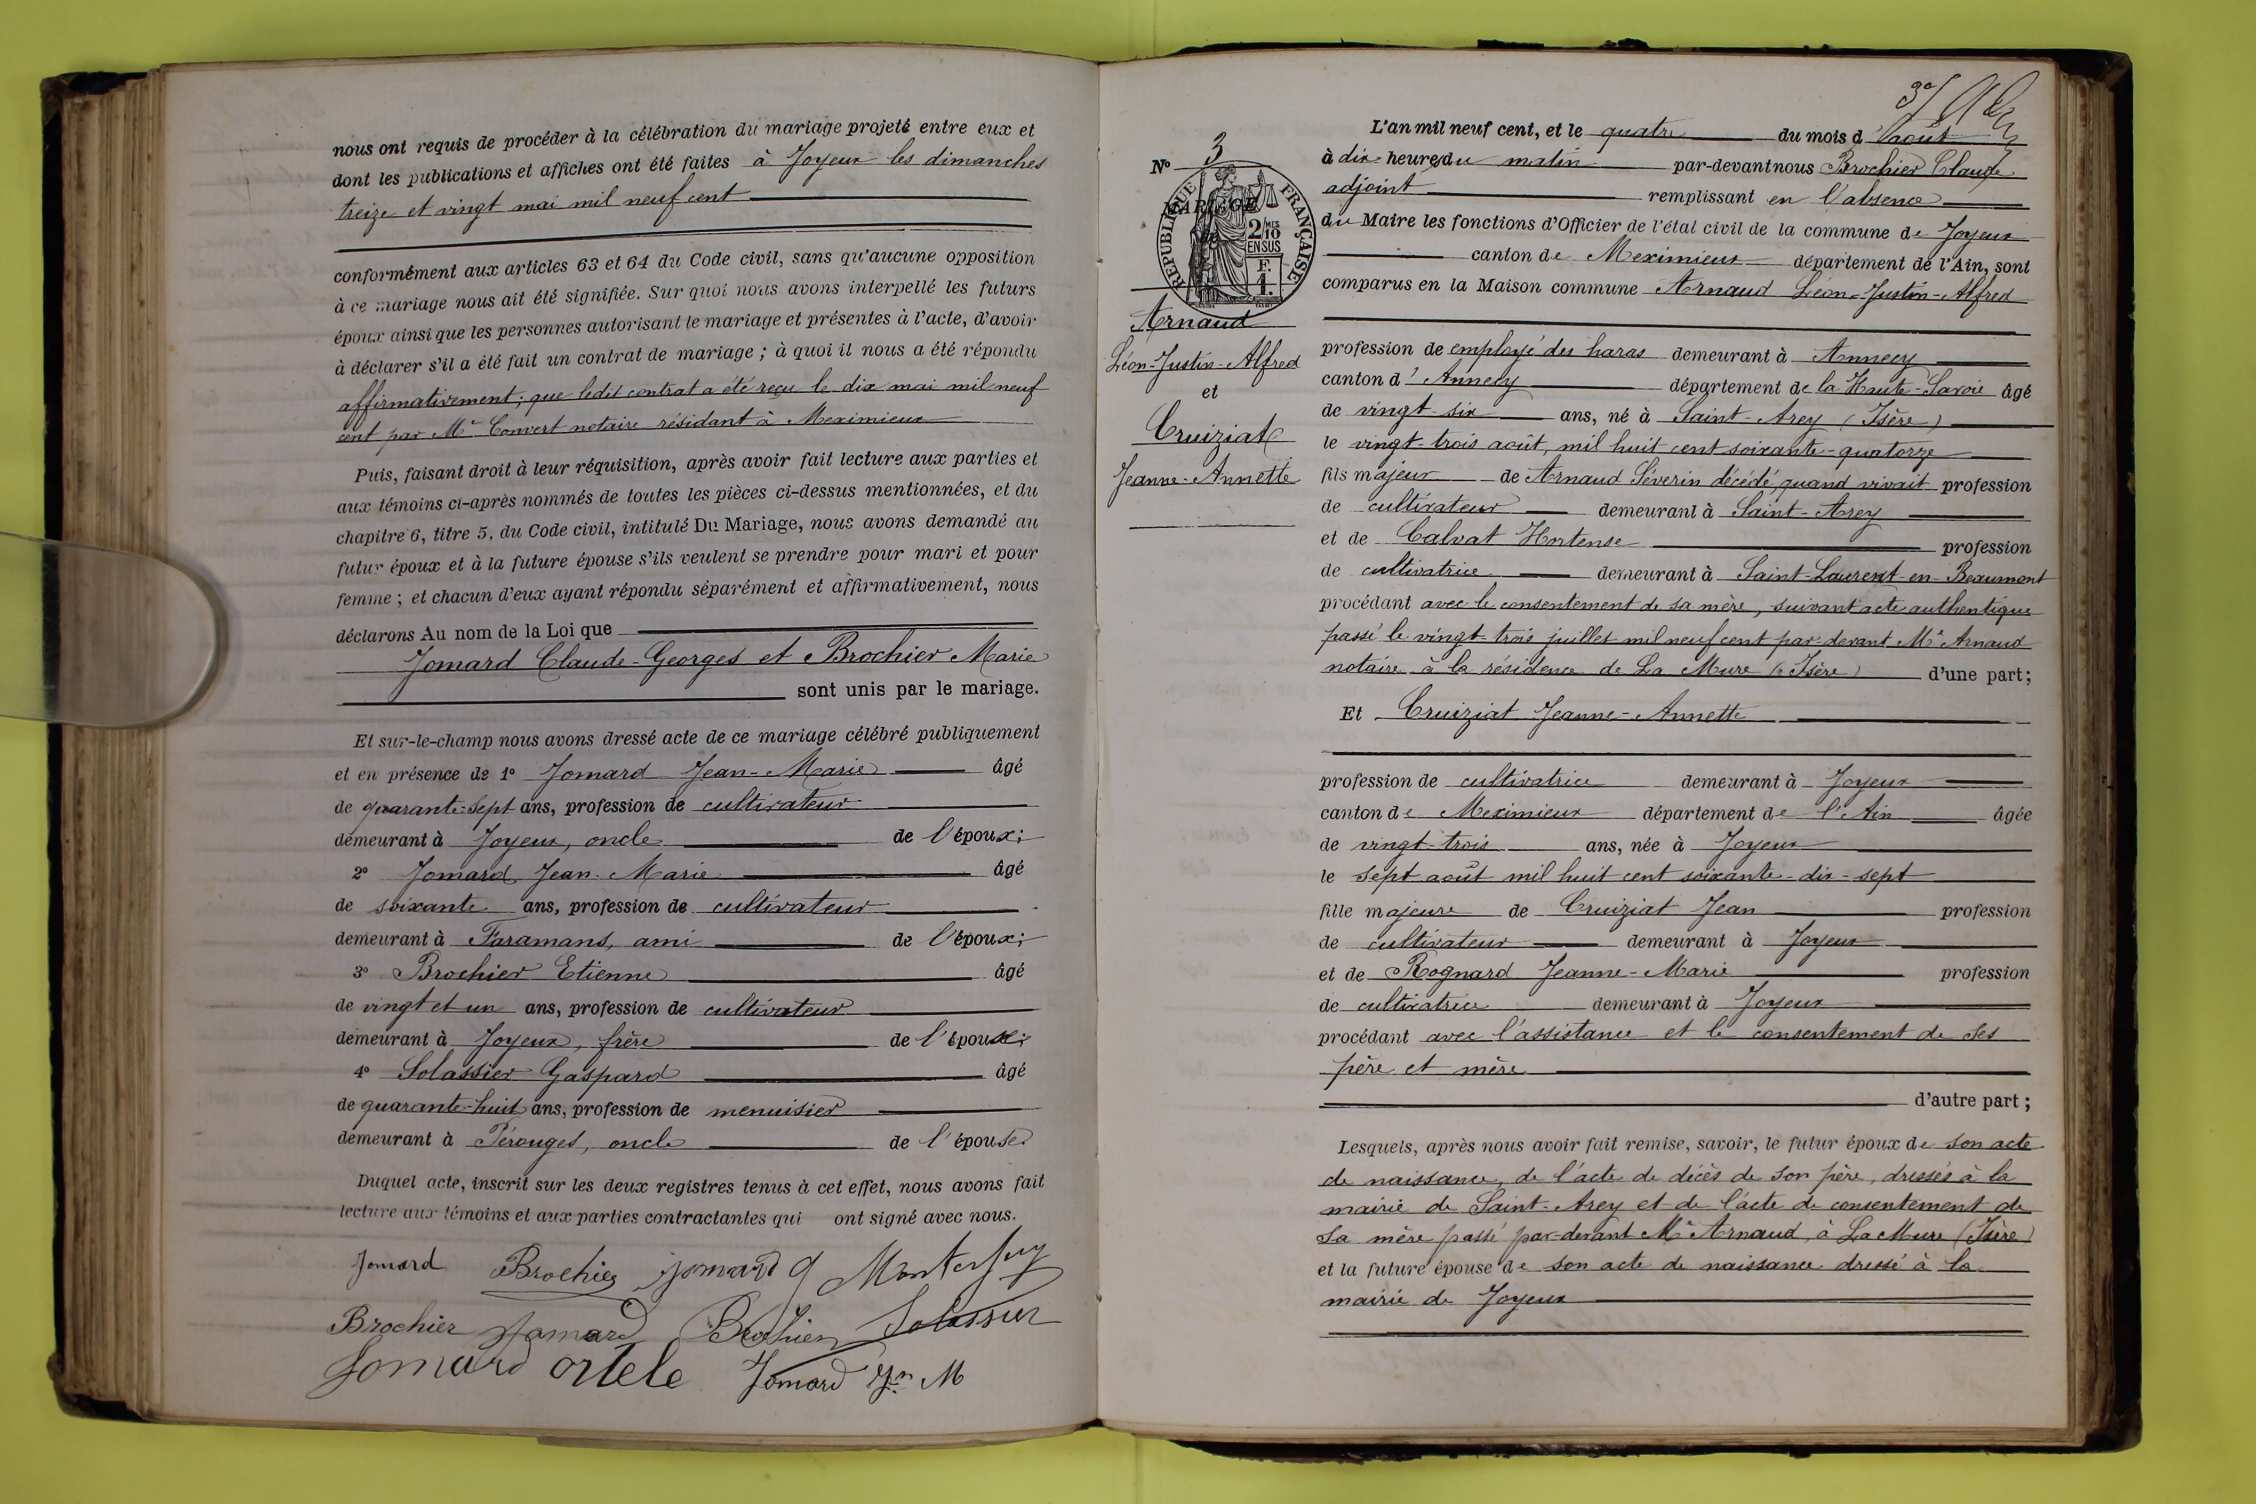 nous ont requis de procéder à la célébration du mariage projeté entre eux et
dont les publications et affiches ont été faites à Joyeux les dimanches
treize et vingt mai mil neuf cent
conformément aux articles 63 et 64 du Code civil, sans qu'aucune opposition
à ce mariage nous ait été signifiée. Sur quoi nous avons interpellé les futurs
époux ainsi que les personnes autorisant le mariage et présentes à l'acte, d'avoir
à déclarer s'il a été fait un contrat de mariage ; à quoi il nous a été répondu
affirmativement ; que ledit contrat a été reçu le dix mai mil neuf
cent par Me Convert notaire résidant à Meximieux
Puis, faisant droit à leur réquisition, après avoir fait lecture aux parties et
aux témoins ci-après nommés de toutes les pièces ci-dessus mentionnées, et du
chapitre 6, titre 5, du Code civil, intitulé Du Mariage, nous avons demandé au
futur époux et à la future épouse s'ils veulent se prendre pour mari et pour
femme ; et chacun d'eux ayant répondu séparément et affirmativement, nous
déclarons Au nom de la Loi que
Jomard Claude-Georges et Brochier Marie
sont unis par le mariage.
Et sur-le-champ nous avons dressé acte de ce mariage célébré publiquement
et en présence de 1° Jomard Jean-Marie âgé
de quarante-sept ans, profession de cultivateur
demeurant à Joyeux, oncle de l'époux ;
2° Jomard Jean-Marie âgé
de soixante ans, profession de cultivateur
demeurant à Faramans, ami de l'époux ;
3° Brochier Etienne âgé
de vingt et un ans, profession de cultivateur
demeurant à Joyeux, frère de l'épouse ;
4° Solassier Gaspard âgé
de quarante-huit ans, profession de menuisier
demeurant à Pérouges, oncle de l'épouse
Duquel acte, inscrit sur les deux registres tenus à cet effet, nous avons fait
lecture aux témoins et aux parties contractantes qui ont signé avec nous.
Jomard Brochier jomard g
Brochier Jomard Brochier Solassier
Jomard Jomard Jn M
L'an mil neuf cent, et le quatre du mois d'août
N° 3
à dix heures du matin par-devant nous Brochier Claude
adjoint remplissant en l'absence
MARIAGE
RÉPUBLIQUE FRANÇAISE
2/10 EN SUS
F. 1.
du Maire les fonctions d'Officier de l'état civil de la commune de Joyeux
canton de Meximieux département de l'Ain, sont
comparus en la Maison commune Arnaud Léon-Justin-Alfred
Arnaud
Léon-Justin-Alfred
et
Cruiziat
Jeanne-Annette
profession de employé des haras demeurant à Annecy
canton d'Annecy département de la Haute-Savoie âgé
de vingt-six ans, né à Saint-Arey (Isère)
le vingt-trois août, mil huit cent soixante-quatorze
fils majeur de Arnaud Séverin décédé, quand vivait profession
de cultivateur demeurant à Saint-Arey
et de Calvat Hortense profession
de cultivatrice demeurant à Saint-Laurent-en-Beaumont
procédant avec le consentement de sa mère, suivant acte authentique
passé le vingt-trois juillet mil neuf cent par-devant Me Arnaud
notaire à la résidence de La Mure (Isère) d'une part ;
Et Cruiziat Jeanne-Annette
profession de cultivatrice demeurant à Joyeux
canton de Meximieux département de l'Ain âgée
de vingt-trois ans, née à Joyeux
le sept août mil huit cent soixante-dix-sept
fille majeure de Cruiziat Jean profession
de cultivateur demeurant à Joyeux
et de Rognard Jeanne-Marie profession
de cultivatrice demeurant à Joyeux
procédant avec l'assistance et le consentement de ses
père et mère
d'autre part ;
Lesquels, après nous avoir fait remise, savoir, le futur époux de son acte
de naissance, de l'acte de décès de son père, dressés à la
mairie de Saint-Arey et de l'acte de consentement de
sa mère passé par-devant Me Arnaud, à La Mure (Isère)
et la future épouse de son acte de naissance dressé à la
mairie de Joyeux